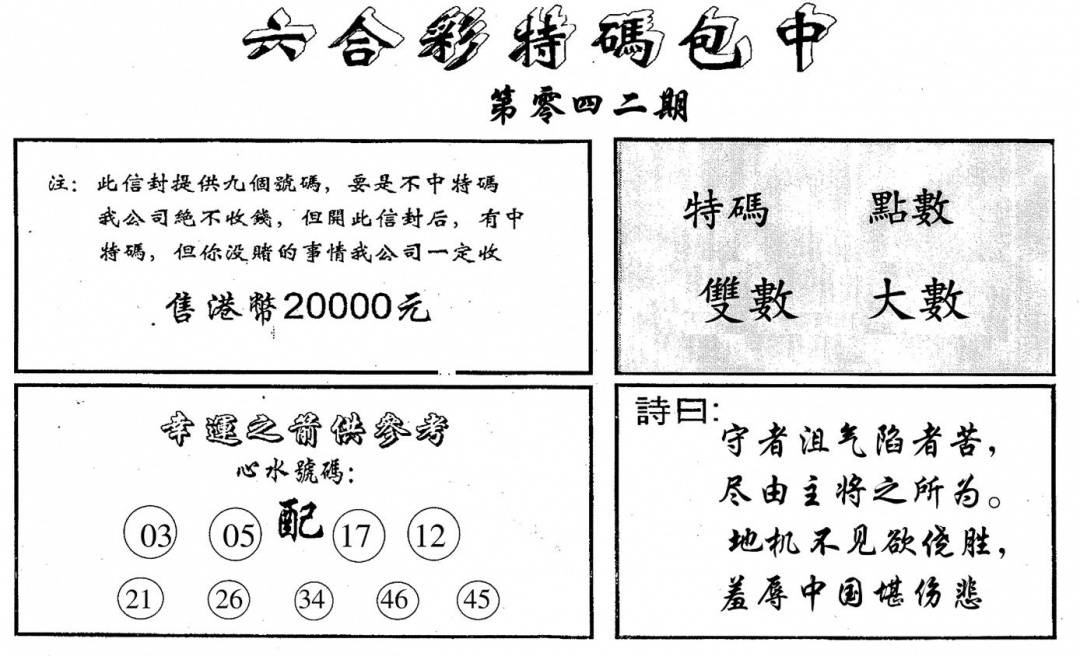 六合彩特碼包中
第零四二期
注：此信封提供九個號碼，要是不中特碼
我公司絕不收錢，但開此信封后，有中
特碼，但你没賭的事情我公司一定收
售港幣20000元
特碼 點數
雙數 大數
幸運之箭供參考
心水號碼：
03 05 配 17 12
21 26 34 46 45
詩曰：
守者沮气陷者苦，
尽由主將之所为。
地机不见欲侥胜，
羞辱中国堪伤悲